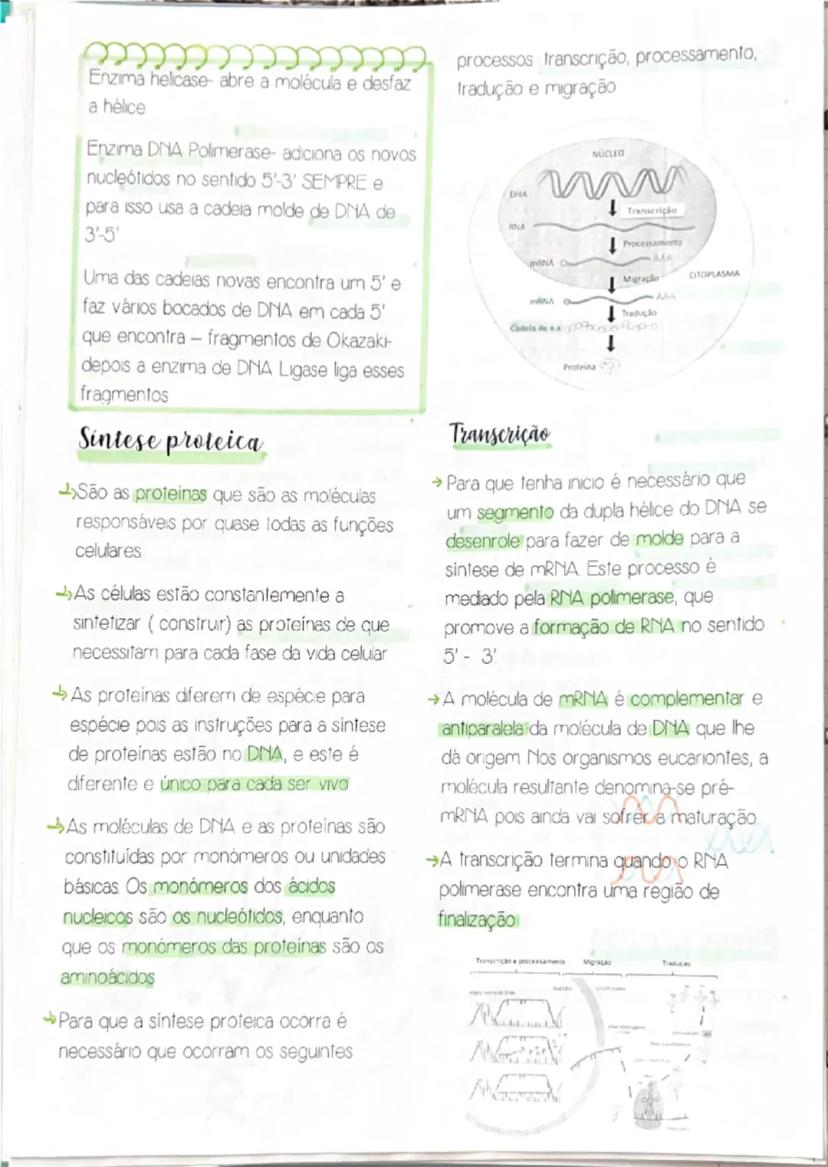 Enzima helicase- abre a molécula e desfaz
a hélice
Enzima DNA Polimerase- adiciona os novos
nucleótidos no sentido 5'-3' SEMPRE e
para isso usa a cadeia molde de DNA de
3'-5'
Uma das cadeias novas encontra um 5' e
faz vários bocados de DNA em cada 5'
que encontra – fragmentos de Okazaki-
depois a enzima de DNA Ligase liga esses
fragmentos
Síntese proteica
São as proteínas que são as moléculas
responsáveis por quase todas as funções
celulares.
As células estão constantemente a
sintetizar ( construir) as proteínas de que
necessitam para cada fase da vida celular.
As proteínas diferem de espécie para
espécie pois as instruções para a síntese
de proteínas estão no DNA, e este é
diferente e único para cada ser vivo
As moléculas de DNA e as proteínas são
constituídas por monómeros ou unidades
básicas. Os monómeros dos ácidos
nucleicos são os nucleótidos, enquanto
que os monómeros das proteínas são os
aminoácidos
Para que a síntese proteica ocorra é
necessário que ocorram os seguintes
processos transcrição, processamento,
tradução e migração
NÚCLEO
DNA
Transcrição
RNA
Processamento
mRNA
AAA
Migração
CITOPLASMA
mRNA
AAA
Tradução
Cadeia de a.a
Proteína
Transcrição
Para que tenha inicio é necessário que
um segmento da dupla hélice do DNA se
desenrole para fazer de molde para a
síntese de mRNA. Este processo é
mediado pela RNA polimerase, que
promove a formação de RNA no sentido
5' - 3'.
A molécula de mRNA é complementar e
antiparalela da molécula de DNA que lhe
dá origem. Nos organismos eucariontes, a
molécula resultante denomina-se pré-
mRNA pois ainda vai sofrer a maturação.
A transcrição termina quando o RNA
polimerase encontra uma região de
finalização
Transcrição e processamento Migração Tradução